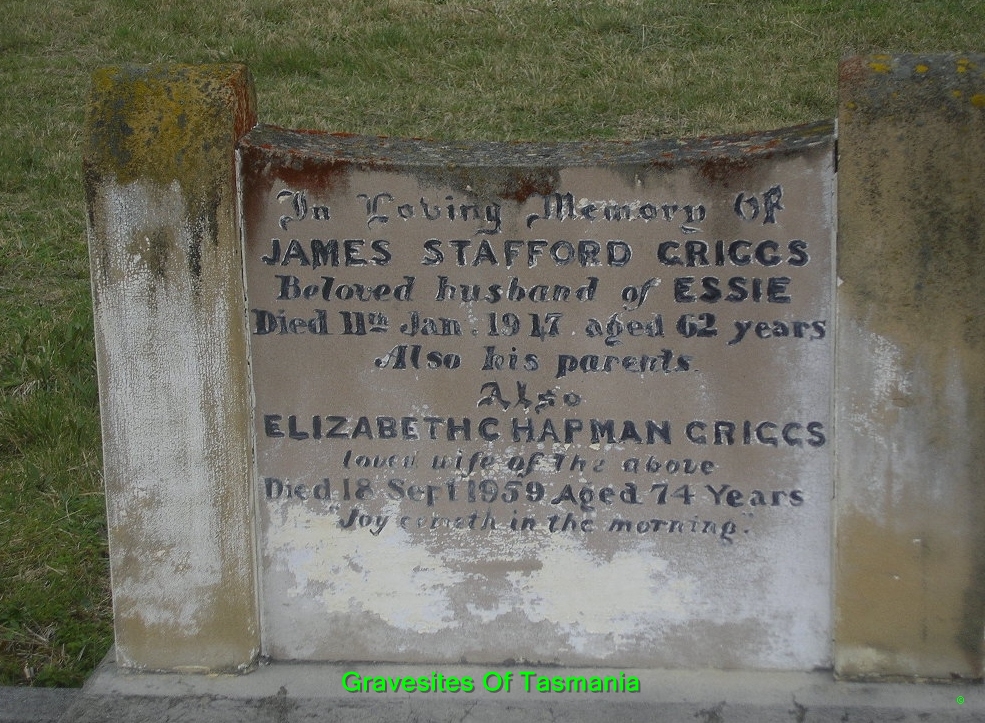 In Loving Memory Of
JAMES STAFFORD GRIGGS
Beloved husband of ESSIE
Died 11th Jan. 1947 aged 62 years
Also his parents.
Also
ELIZABETH CHAPMAN GRIGGS
loved wife of the above
Died 18 Sept 1959 Aged 74 Years
"Joy cometh in the morning."
Gravesites Of Tasmania
©